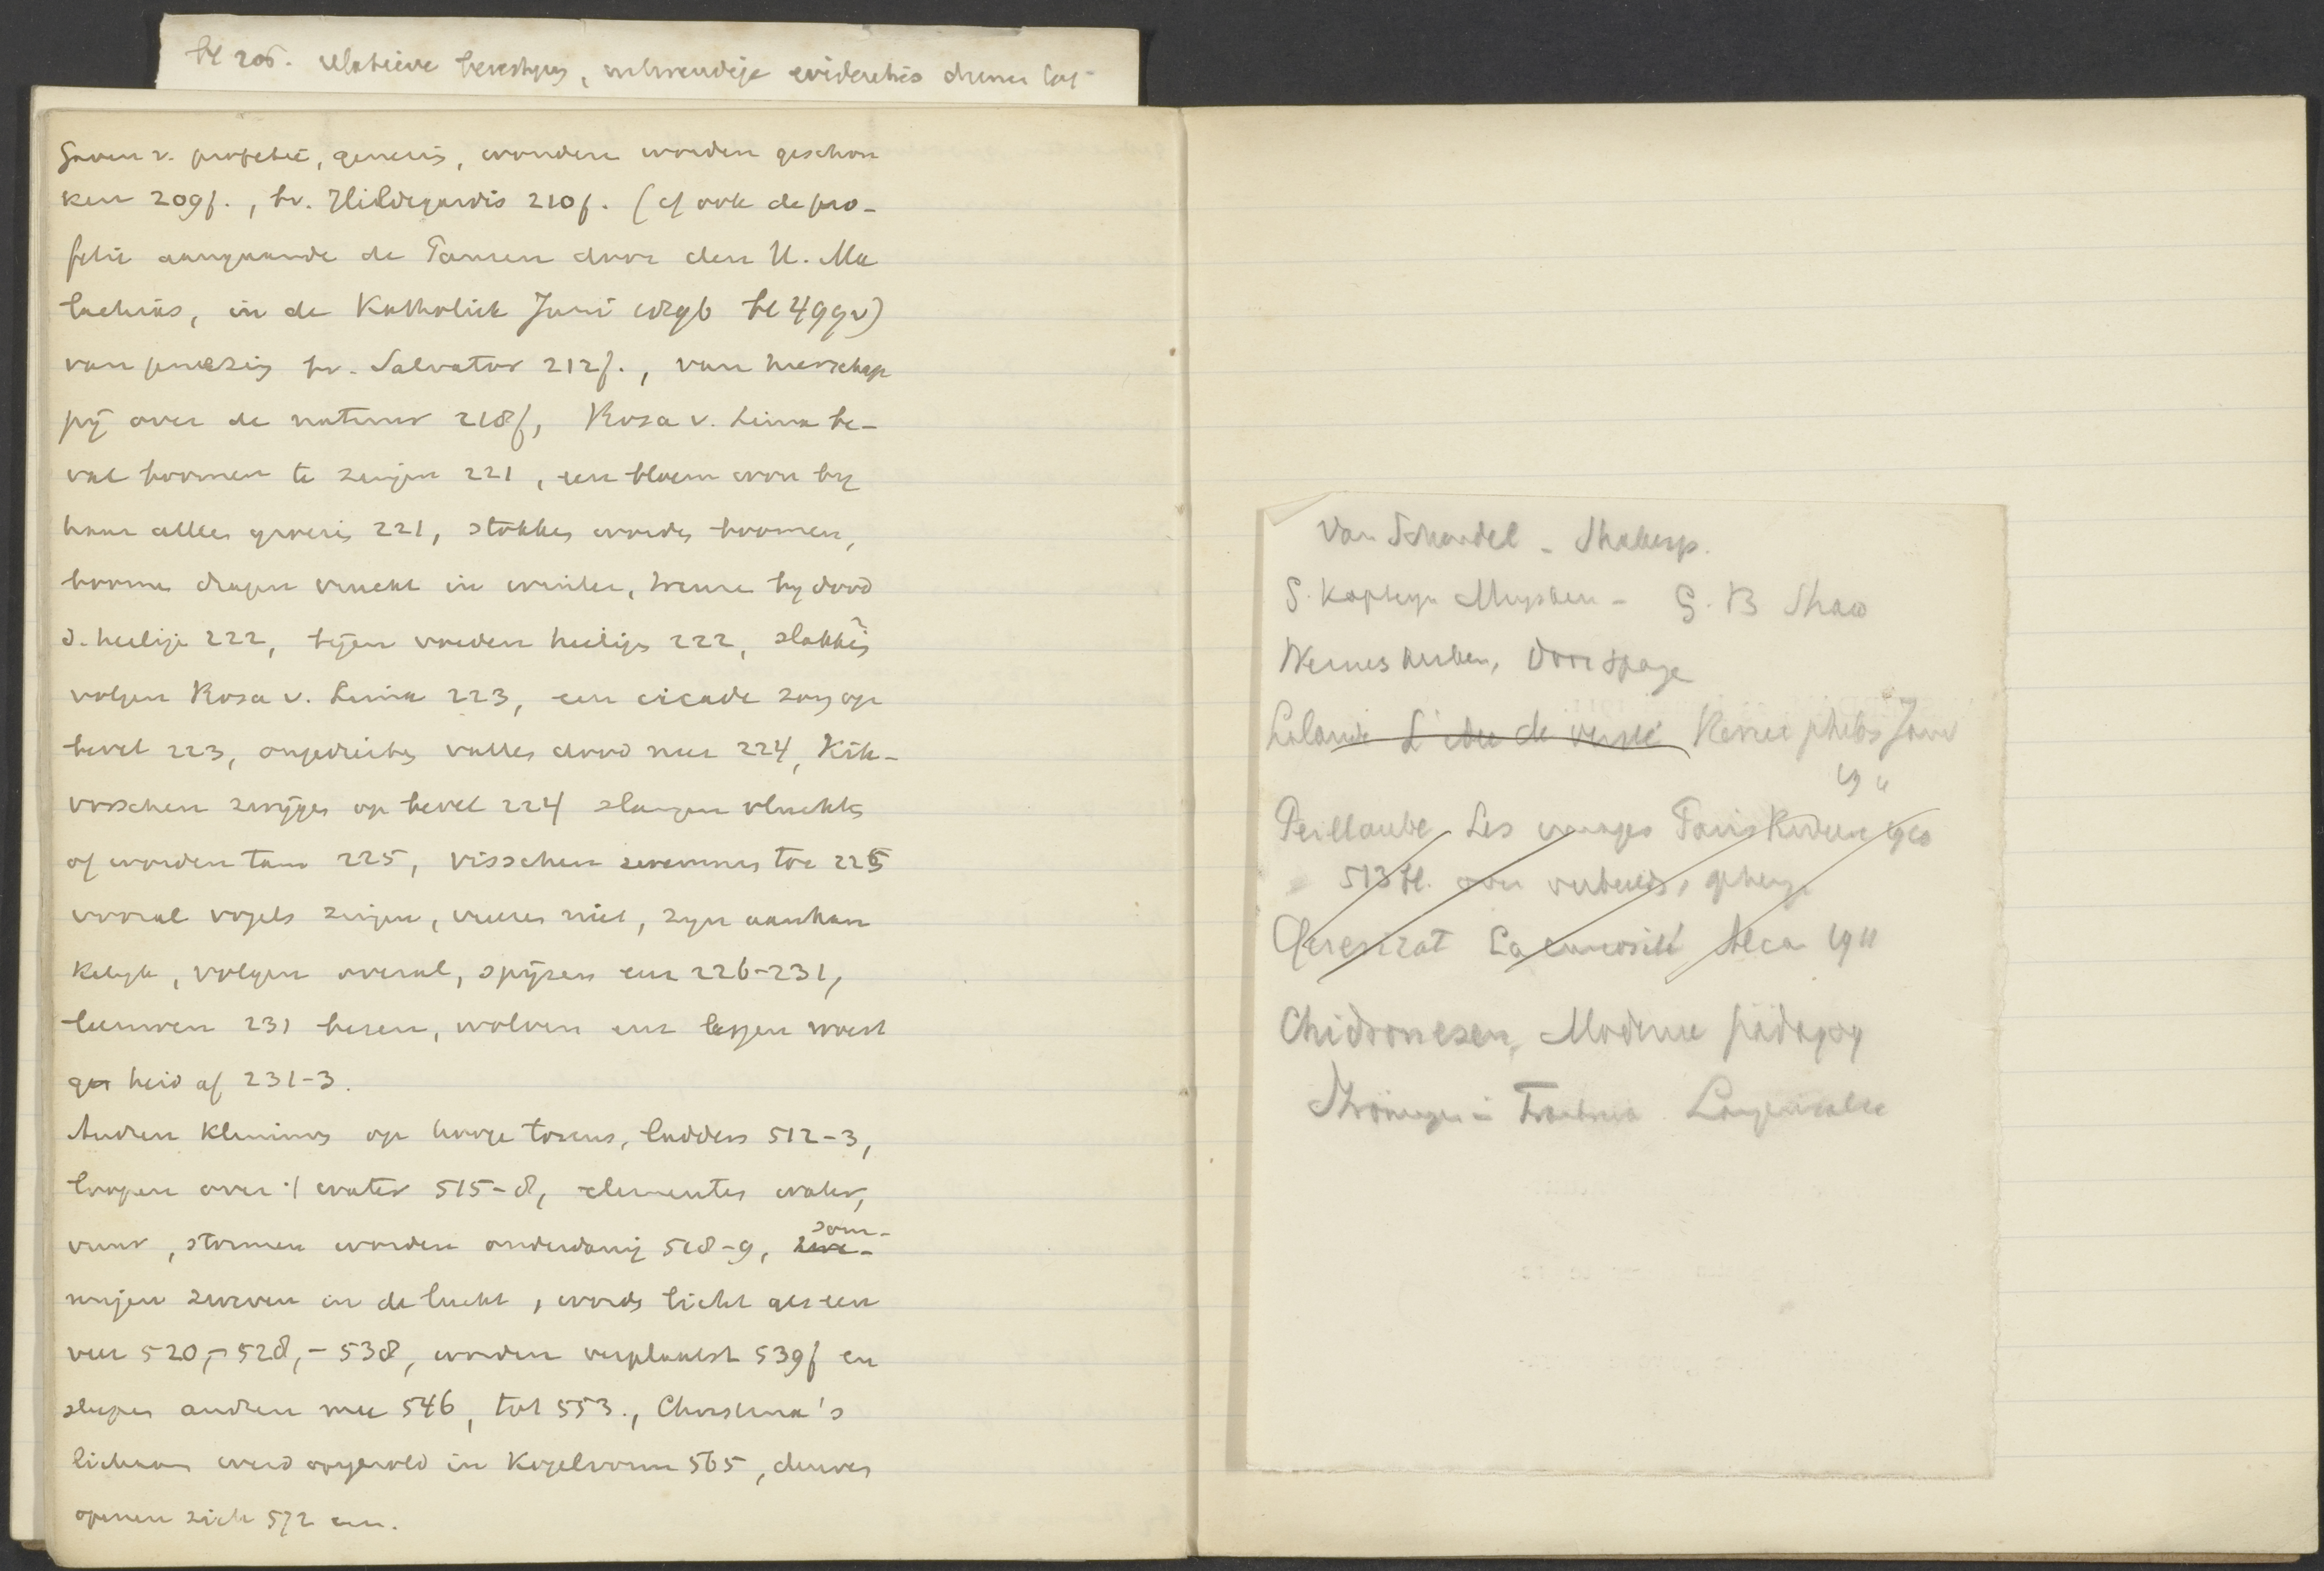 bl 206. relatieve
Gaven v. profetie, genezing, wonderen worden geschon
ken 209f., bv. Hildegardis 210f. (cf ook de pro-
fetie aangaande de Pausen door den H. Ma
lachias, in de Katholiek Juni bl 499v)
van genezing bv. Salvator 212f., van heerschap
pij over de natuur 218f, Rosa v. Lima be-
val boomen te zingen 221, een bloem
haar alles 221, stokken worden boomen,
boomen dragen vrucht in winter, by dood
d. heilige 222, bijen voeden heiligen 222, slakken
volgen Rosa v. Lima 223, een cicade zong op
bevel 223, ongedierte vallen dood neer 224, Kik-
vorschen zwijgen op bevel 224 slangen vluchten
of worden tam 225, visschen zwemmen toe 225
vooral vogels zingen, vreezen niet, zyn aanhan
kelyk, volgen overal, spijzen enz 226-231,
leeuwen 231 beren, wolven enz leggen woest
heid af 231-3.
Andren klimmen op hooge torens, ladders 512-3,
loopen over 't water 515-8, elementen water,
vuur, stormen worden onderdanig 518-9, som-
migen zweven in de lucht, worden licht als een
veer 520,-528,-538, worden verplaatst 539f en
slepen andren mee 546, tot 553., Christina's
lichaam werd opgerold in Kogelvorm 565, deuren
openen zich 572 enz.
Van Schendel - Shakesp.
G. Kapteyn Muysken - G. B Shaw
Wernes
Lalande L'idée de vérité Revue philos Janv
1911
Peillaube Les images Paris Riviere 1910
513 bl. over verbeeld., geheug.
Queyrat La curiosité Alcan 1911
Moderne pädagog
Strömungen in Frankreich Langensalza